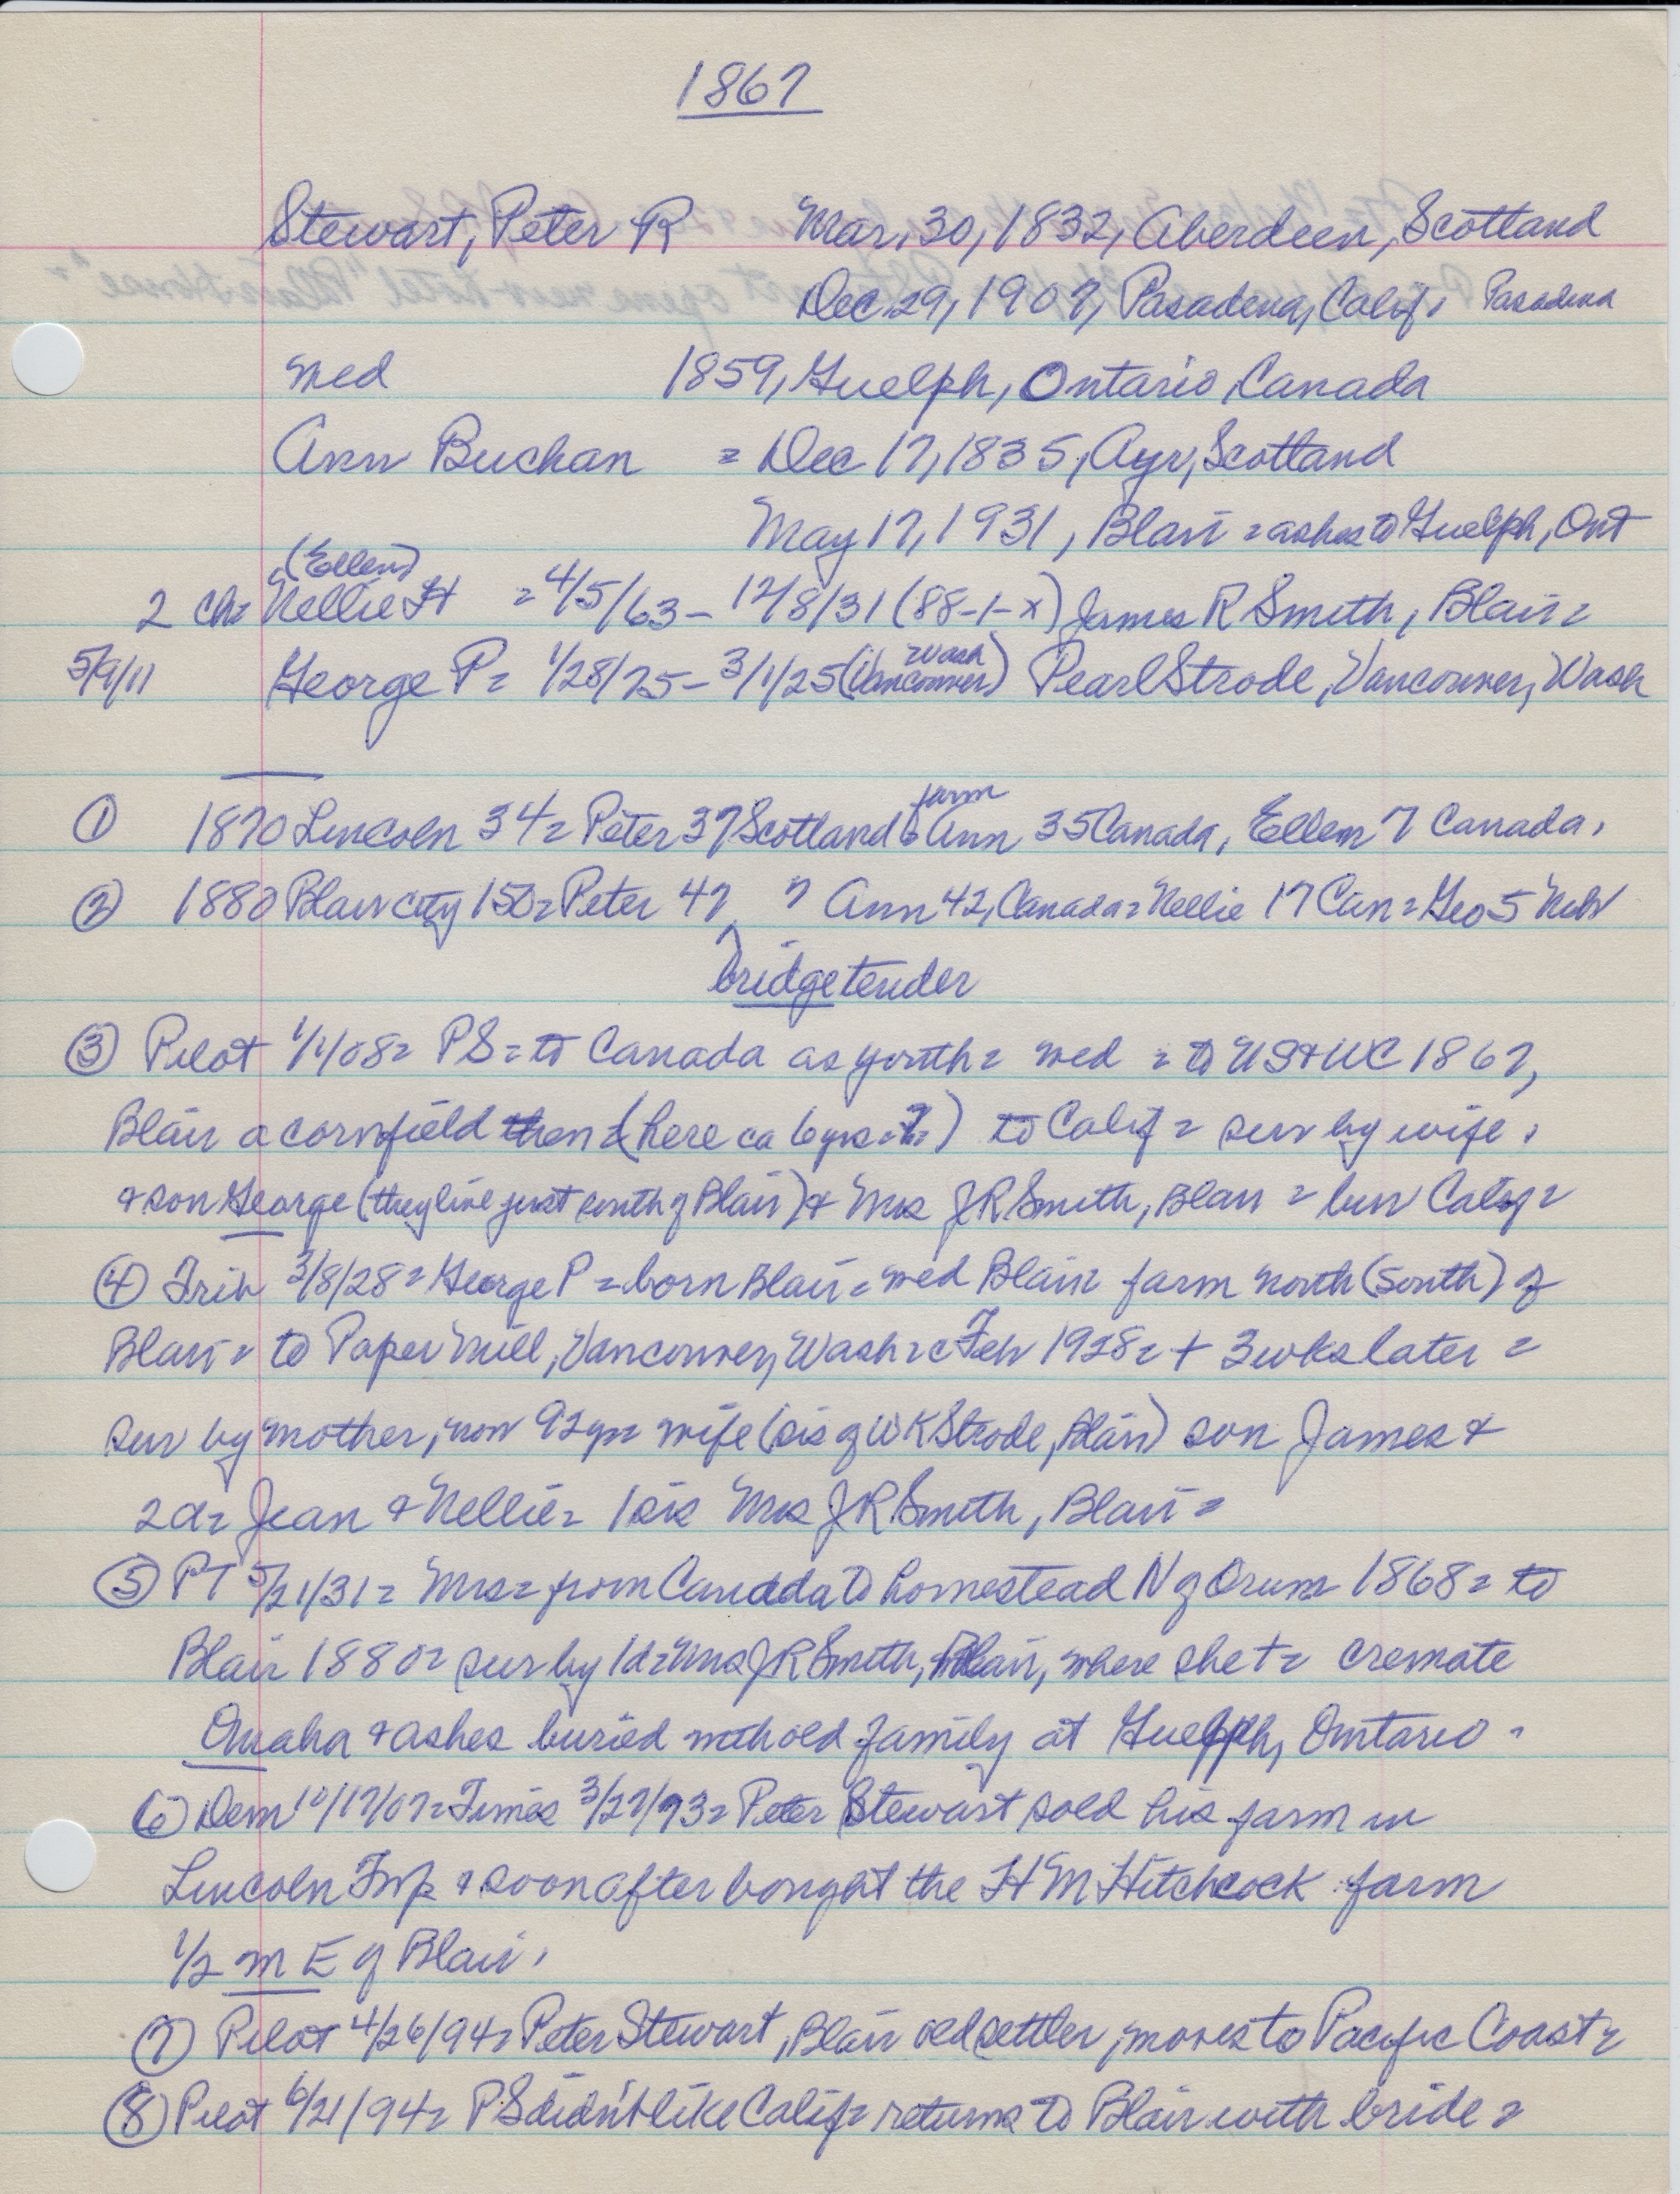 1867
Stewart, Peter R Mar, 30, 1832, Aberdeen, Scotland
Dec 29, 1907, Pasadena, Calif, Pasadena
med 1859, Guelph, Ontario, Canada
Ann Buchan = Dec 17, 1835, Ayr, Scotland
May 17, 1931, Blair = ashes to Guelph, Ont
(Ellen)
2 ch= Nellie H = 4/5/63 - 12/8/31 (88-1-x) James R Smith, Blair =
5/9/11 George P = 1/28/75 - 3/1/25 (Vancouver, Wash) Pearl Strode, Vancouver, Wash
① 1870 Lincoln 34 = Peter 37 Scotland farm Ann 35 Canada, Ellen 7 Canada.
② 1880 Blair city 150 = Peter 47, ? Ann 42, Canada = Nellie 17 Can = Geo 5 Neb
bridgetender
③ Pilot 1/1/08 = PS = to Canada as youth = med = to US & WC 1867,
Blair a cornfield then = (here ca 6 yrs = ?) to Calif = surv by wife,
& son George (they live just south of Blair) & Mrs J R Smith, Blair = bur Calif =
④ Trib 3/8/28 = George P = born Blair = med Blair = farm north (South) of
Blair = to Paper Mill, Vancouver, Wash = c Feb 1928 = + 3 wks later =
surv by mother, now 92 yr = wife (sis of W K Strode, Blair) son James &
2 d = Jean & Nellie = 1 sis Mrs J R Smith, Blair =
⑤ PT 5/21/31 = Mrs = from Canada to homestead N of Orum 1868 = to
Blair 1880 = surv by 1 d = Mrs J R Smith, Blair, where she + = cremate
Omaha & ashes buried with old family at Guelph, Ontario.
⑥ Dem 10/17/07 = Times 3/27/73 = Peter Stewart sold his farm in
Lincoln Twp & soon after bought the H M Hitchcock farm
1/2 m E of Blair.
⑦ Pilot 4/26/94 = Peter Stewart, Blair old settler, moves to Pacific Coast =
⑧ Pilot 6/21/94 = PS didn't like Calif = returns to Blair with bride =